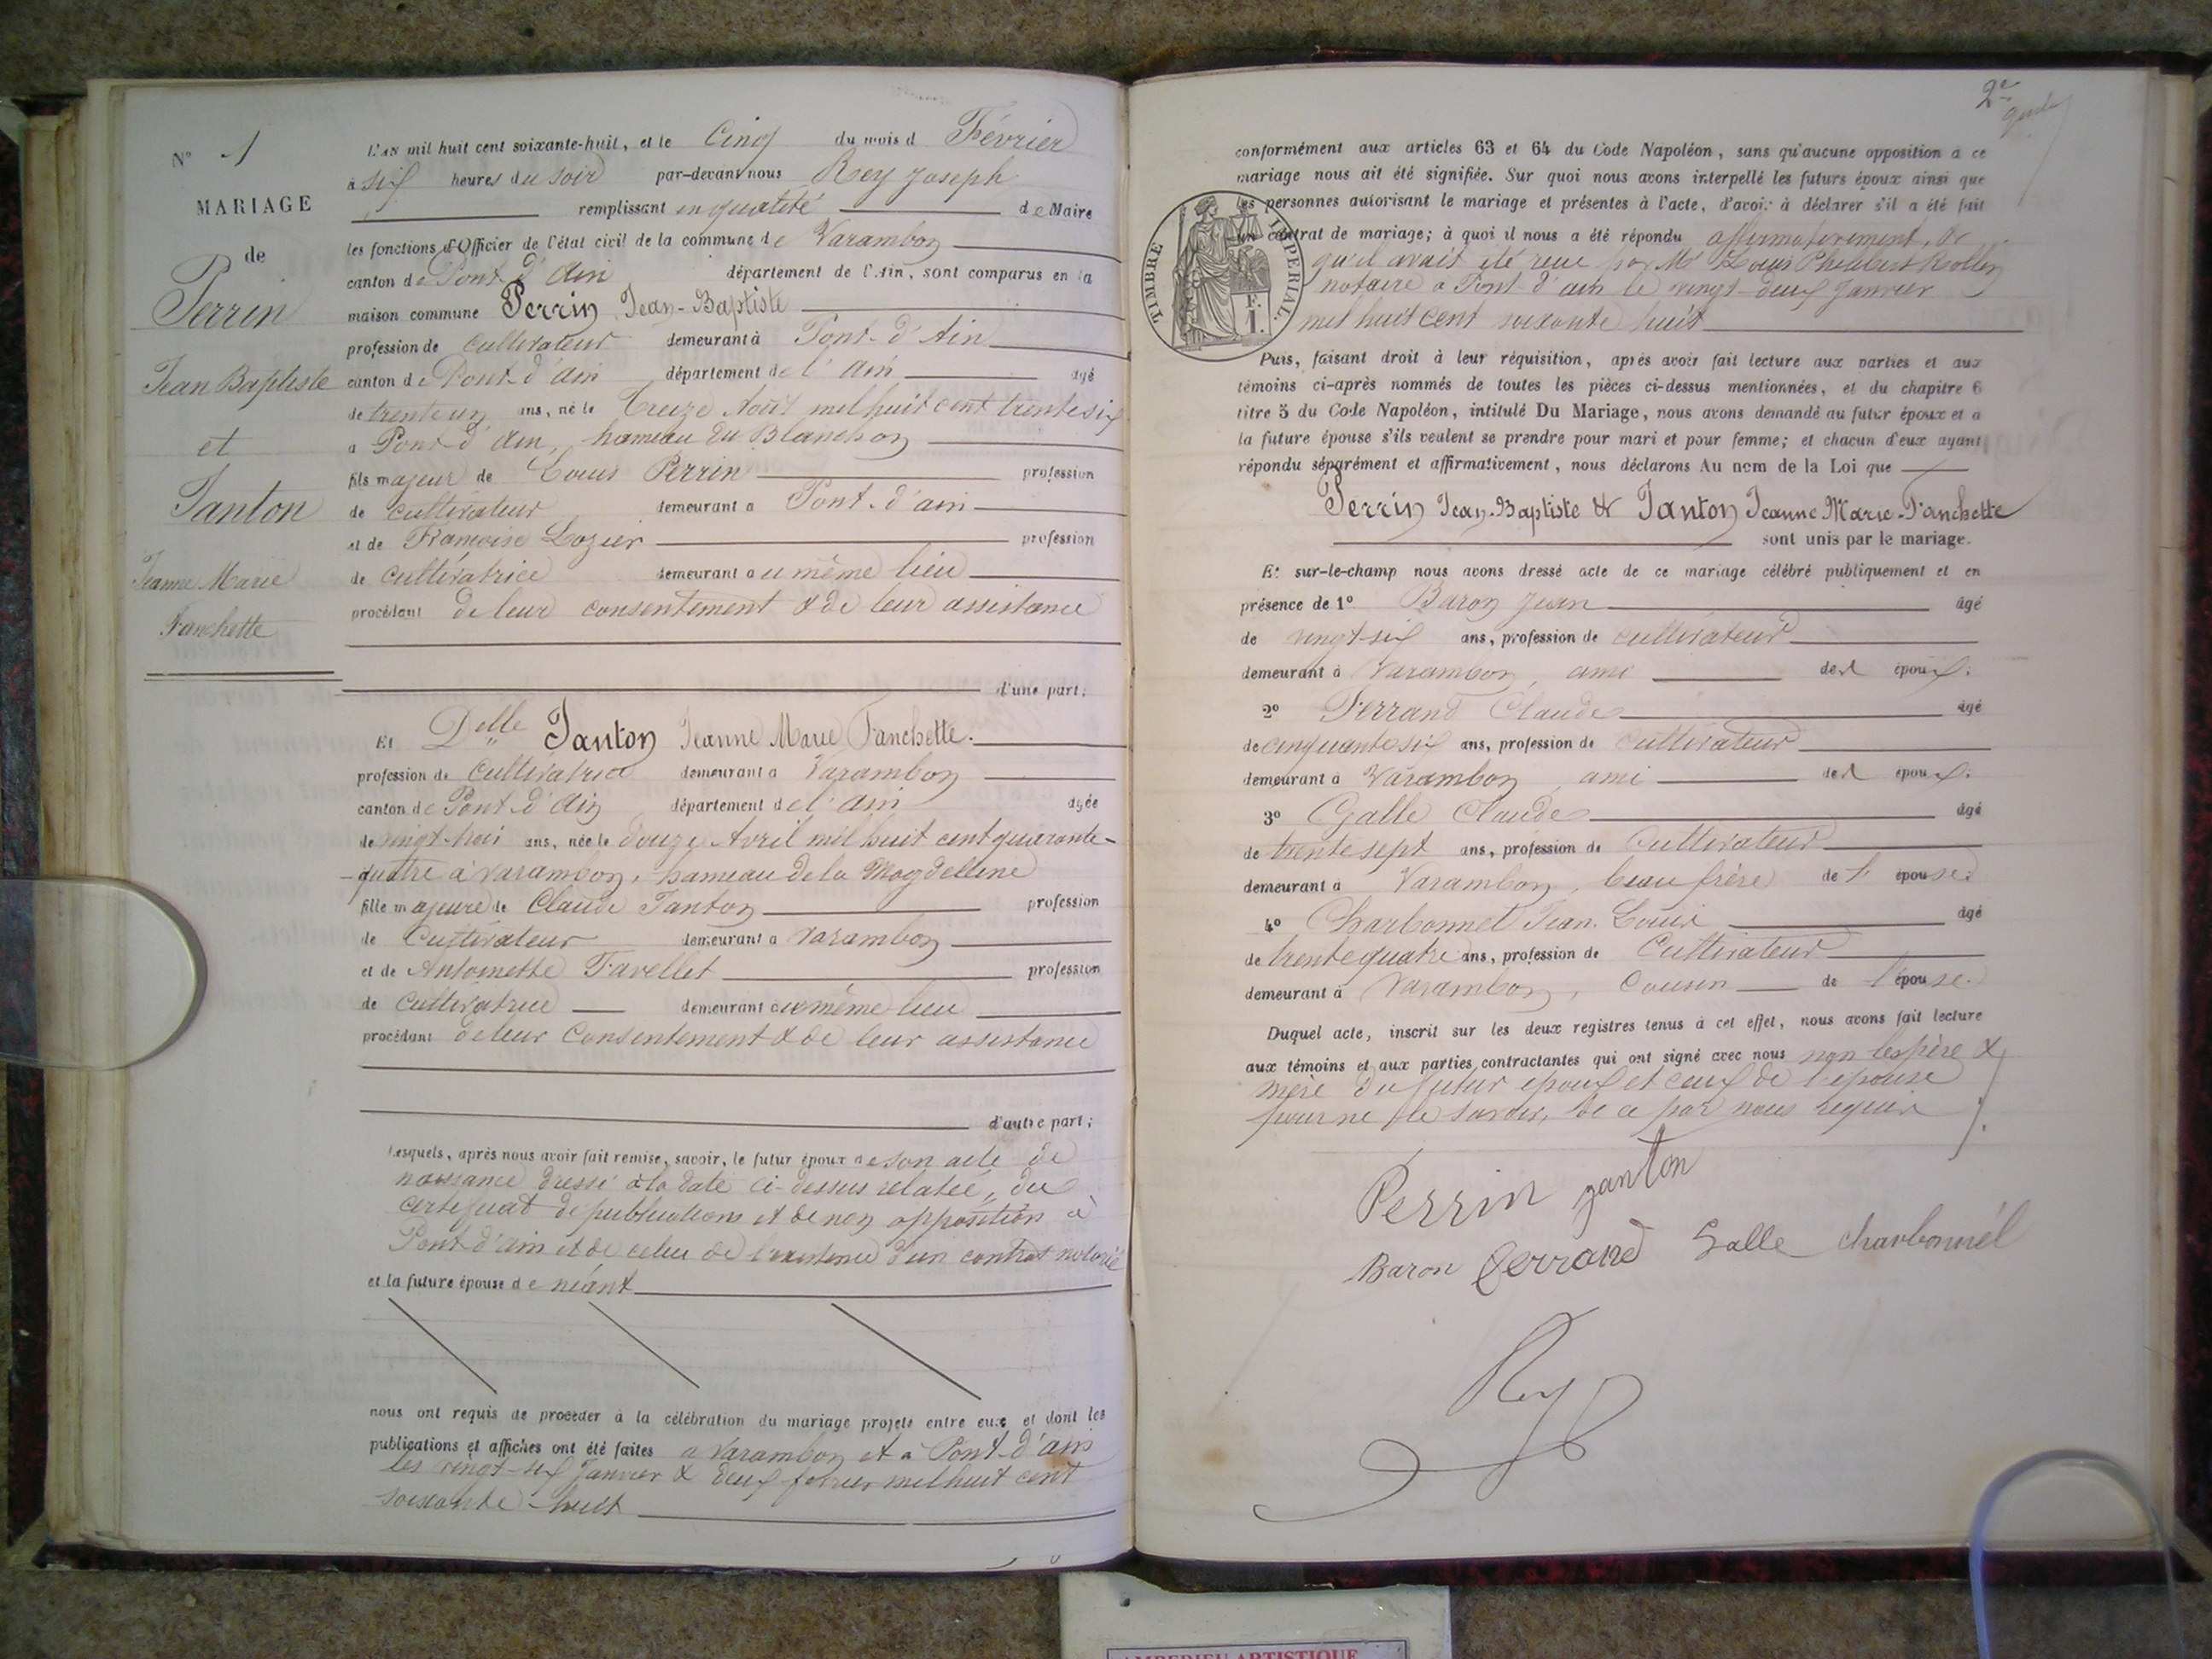 N° 1
MARIAGE
de
Perrin
Jean Baptiste
et
Janton
Jeanne Marie
Fanchette
L'AN mil huit cent soixante-huit, et le Cinq du mois d Février
à six heures du soir par-devant nous Rey Joseph
remplissant en qualité de Maire
les fonctions d'Officier de l'état civil de la commune de Varambon
canton de Pont d'Ain département de l'Ain, sont comparus en la
maison commune Perrin Jean-Baptiste
profession de cultivateur demeurant à Pont-d'Ain
canton de Pont d'Ain département de l'Ain âgé
de trente un ans, né le Treize Août mil huit cent trente six
à Pont d'Ain, hameau du Blanchon
fils majeur de Louis Perrin profession
de cultivateur demeurant à Pont-d'ain
et de Françoise Lozier profession
de cultivatrice demeurant au même lieu
procédant de leur consentement & de leur assistance
d'une part;
Et Delle Janton Jeanne Marie Fanchette.
profession de Cultivatrice demeurant à Varambon
canton de Pont-d'Ain département de l'Ain âgée
de vingt-trois ans, née le douze Avril mil huit cent quarante-
-quatre à Varambon, hameau de la Magdelleine
fille majeure de Claude Janton profession
de Cultivateur demeurant à Varambon
et de Antoinette Favellet profession
de Cultivatrice demeurant au même lieu
procédant de leur Consentement & de leur assistance
d'autre part;
Lesquels, après nous avoir fait remise, savoir, le futur époux de son acte de
naissance dressé à la date ci-dessus relatée, du
certificat de publications et de non opposition à
Pont-d'ain et de celui de l'existence d'un contrat notarié
et la future épouse de néant
nous ont requis de procéder à la célébration du mariage projeté entre eux et dont les
publications et affiches ont été faites à Varambon et à Pont-d'ain
les vingt-six Janvier & deux février mil huit cent
soixante-huit
2e
conformément aux articles 63 et 64 du Code Napoléon, sans qu'aucune opposition à ce
mariage nous ait été signifiée. Sur quoi nous avons interpellé les futurs époux ainsi que
les personnes autorisant le mariage et présentes à l'acte, d'avoir à déclarer s'il a été fait
un contrat de mariage; à quoi il nous a été répondu affirmativement, &
qu'il avait été reçu par Me Louis Philibert
notaire à Pont-d'ain le vingt-deux Janvier
mil huit cent soixante huit
TIMBRE IMPERIAL
F.
1.
Puis, faisant droit à leur réquisition, après avoir fait lecture aux parties et aux
témoins ci-après nommés de toutes les pièces ci-dessus mentionnées, et du chapitre 6
titre 5 du Code Napoléon, intitulé Du Mariage, nous avons demandé au futur époux et à
la future épouse s'ils veulent se prendre pour mari et pour femme; et chacun d'eux ayant
répondu séparément et affirmativement, nous déclarons Au nom de la Loi que
Perrin Jean-Baptiste & Janton Jeanne Marie-Fanchette
sont unis par le mariage.
Et sur-le-champ nous avons dressé acte de ce mariage célébré publiquement et en
présence de 1° Baron Jean âgé
de vingt-six ans, profession de cultivateur
demeurant à Varambon, ami de l époux.
2° Ferrand Claude âgé
de cinquante six ans, profession de cultivateur
demeurant à Varambon ami de l époux.
3° Galle Claude âgé
de trente sept ans, profession de Cultivateur
demeurant à Varambon, beau frère de l' épouse.
4° Charbonnel Jean-Louis âgé
de trente quatre ans, profession de Cultivateur
demeurant à Varambon, Cousin de l'épouse.
Duquel acte, inscrit sur les deux registres tenus à cet effet, nous avons fait lecture
aux témoins et aux parties contractantes qui ont signé avec nous non les père &
mère du futur époux et ceux de l'épouse
pour ne le savoir, de ce par nous requis
Perrin janton
Baron ferrand Galle charbonnél
Rey
AMBERIEU ARTISTIQUE